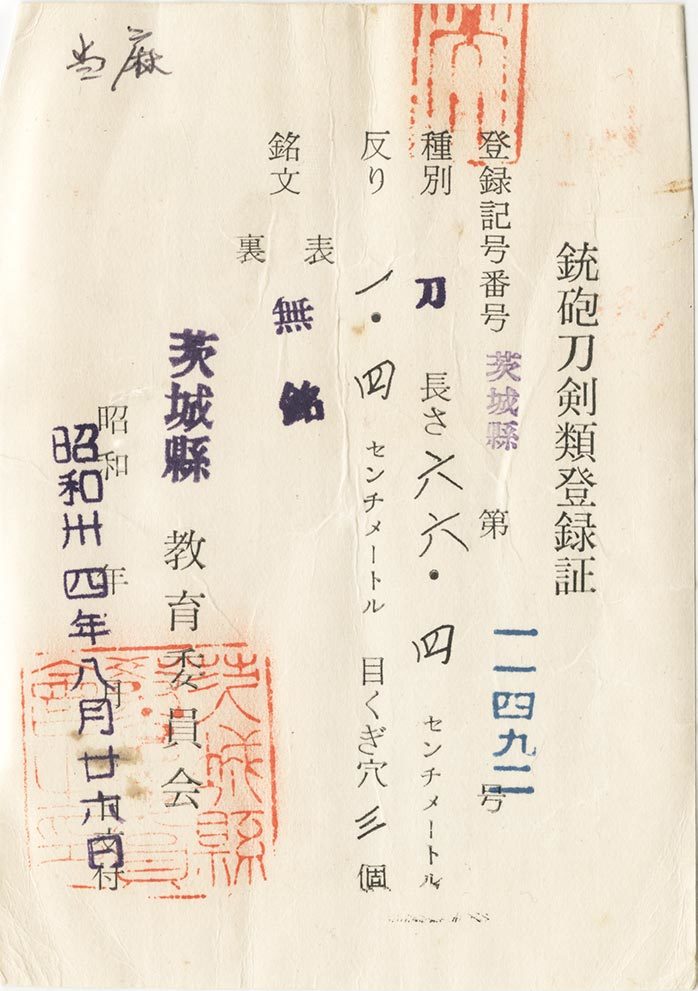 銃砲刀剣類登録証
登録記号番号 茨城縣 第 一一四九二 号
種別 刀 長さ 六六・四 センチメートル
反り 一・四 センチメートル 目くぎ穴 三 個
銘文 表 無銘
裏
茨城縣 教育委員会
昭和 年 月 日交付
昭和卅四年八月廿六日
当麻